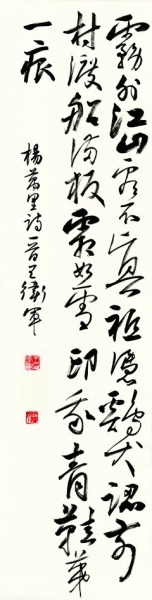 霧外江山看不真祗憑鷄犬認前
村渡船滿板霜如雪印我青鞋第
一痕
楊萬里詩一首王衛軍